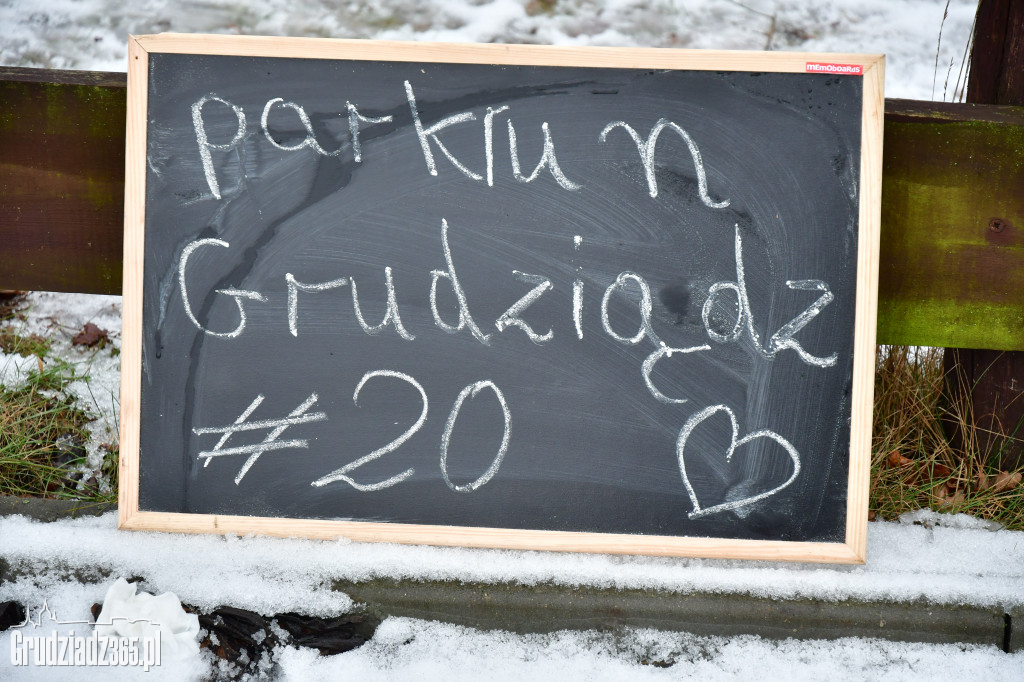 MEMOBOARDS
parkrun
Grudziądz
#20
Grudziadz365.pl